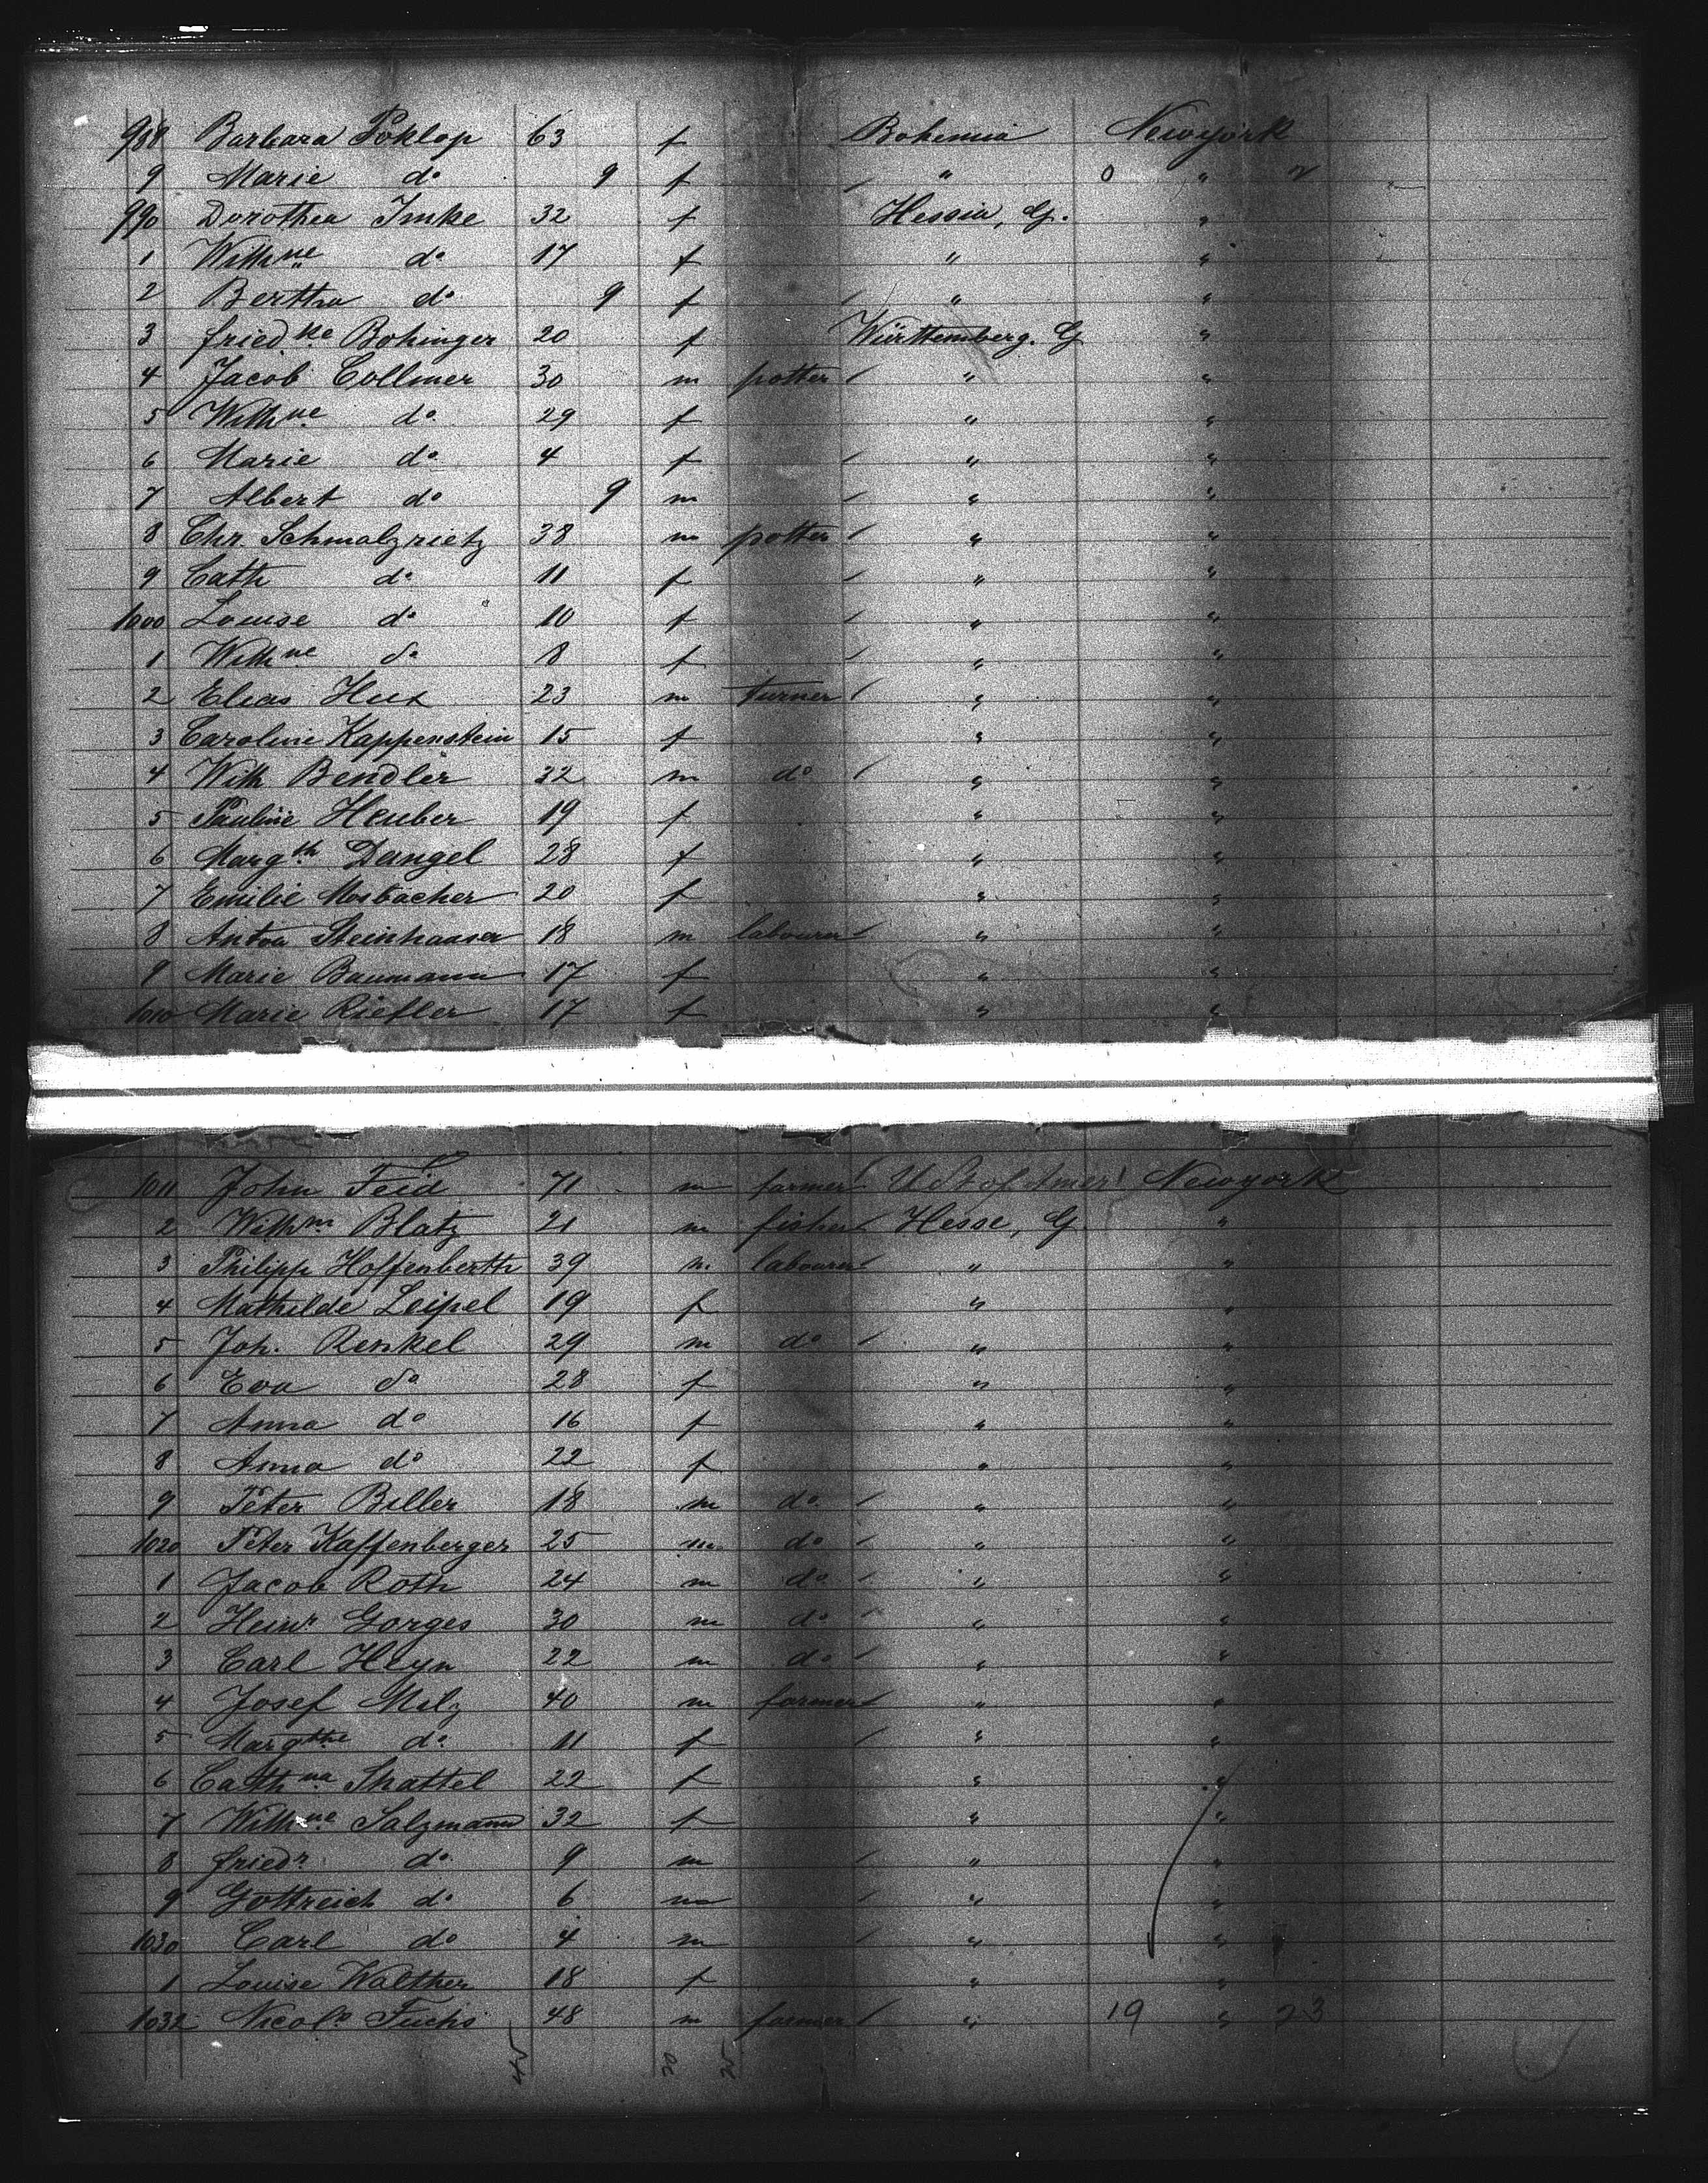 988 Barbara Poklop 63 f Bohemia Newyork
9 Marie do 9 f " 0 " 2
990 Dorothea Imke 32 f Hessia, G. "
1 Wilhne do 17 f " "
2 Bertha do 9 f " "
3 Friedke Bohinger 20 f Württemberg. G "
4 Jacob Collmer 30 m potter " "
5 Wilhne do 29 f " "
6 Marie do 4 f " "
7 Albert do 9 m " "
8 Chr. Schmalzrietz 38 m potter " "
9 Cath do 11 f " "
1000 Louise do 10 f " "
1 Wilhne do 8 f " "
2 Elias Hux 23 m turner " "
3 Caroline Kappenstein 15 f " "
4 Wilh Bendler 32 m do " "
5 Pauline Heuber 19 f " "
6 Margth Dangel 28 f " "
7 Emilie Mosbacher 20 f " "
8 Anton Steinhauser 18 m labourer " "
9 Marie Baumann 17 f " "
1010 Marie Riefler 17 f " "
1011 John Feid 71 m farmer U St of Amer Newyork
2 Wilhm Blatz 21 m fisher Hesse, G "
3 Philipp Hoffenberth 39 m labourer " "
4 Mathilde Leipel 19 f " "
5 Joh. Renkel 29 m do " "
6 Eva do 28 f " "
7 Anna do 16 f " "
8 Anna do 22 f " "
9 Peter Biller 18 m do " "
1020 Peter Kaffenberger 25 m do " "
1 Jacob Roth 24 m do " "
2 Heinr Gorges 30 m do " "
3 Carl Heyn 22 m do " "
4 Josef Milz 40 m farmer " "
5 Margthe do 11 f " "
6 Cathna Shattel 22 f " "
7 Wilhne Salzmann 32 f " "
8 Friedr do 9 m " "
9 Gottreich do 6 m " "
1030 Carl do 4 m " "
1 Louise Walther 18 f " "
1032 Nicols Fuchs 48 m farmer " 19 " 23